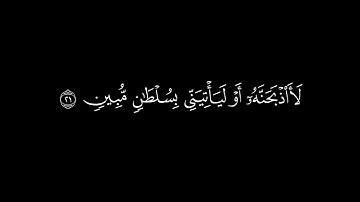 لَأَاْذۡبَحَنَّهُۥٓ أَوۡ لَيَأۡتِيَنِّي بِسُلۡطَٰنٖ مُّبِينٖ ٢١